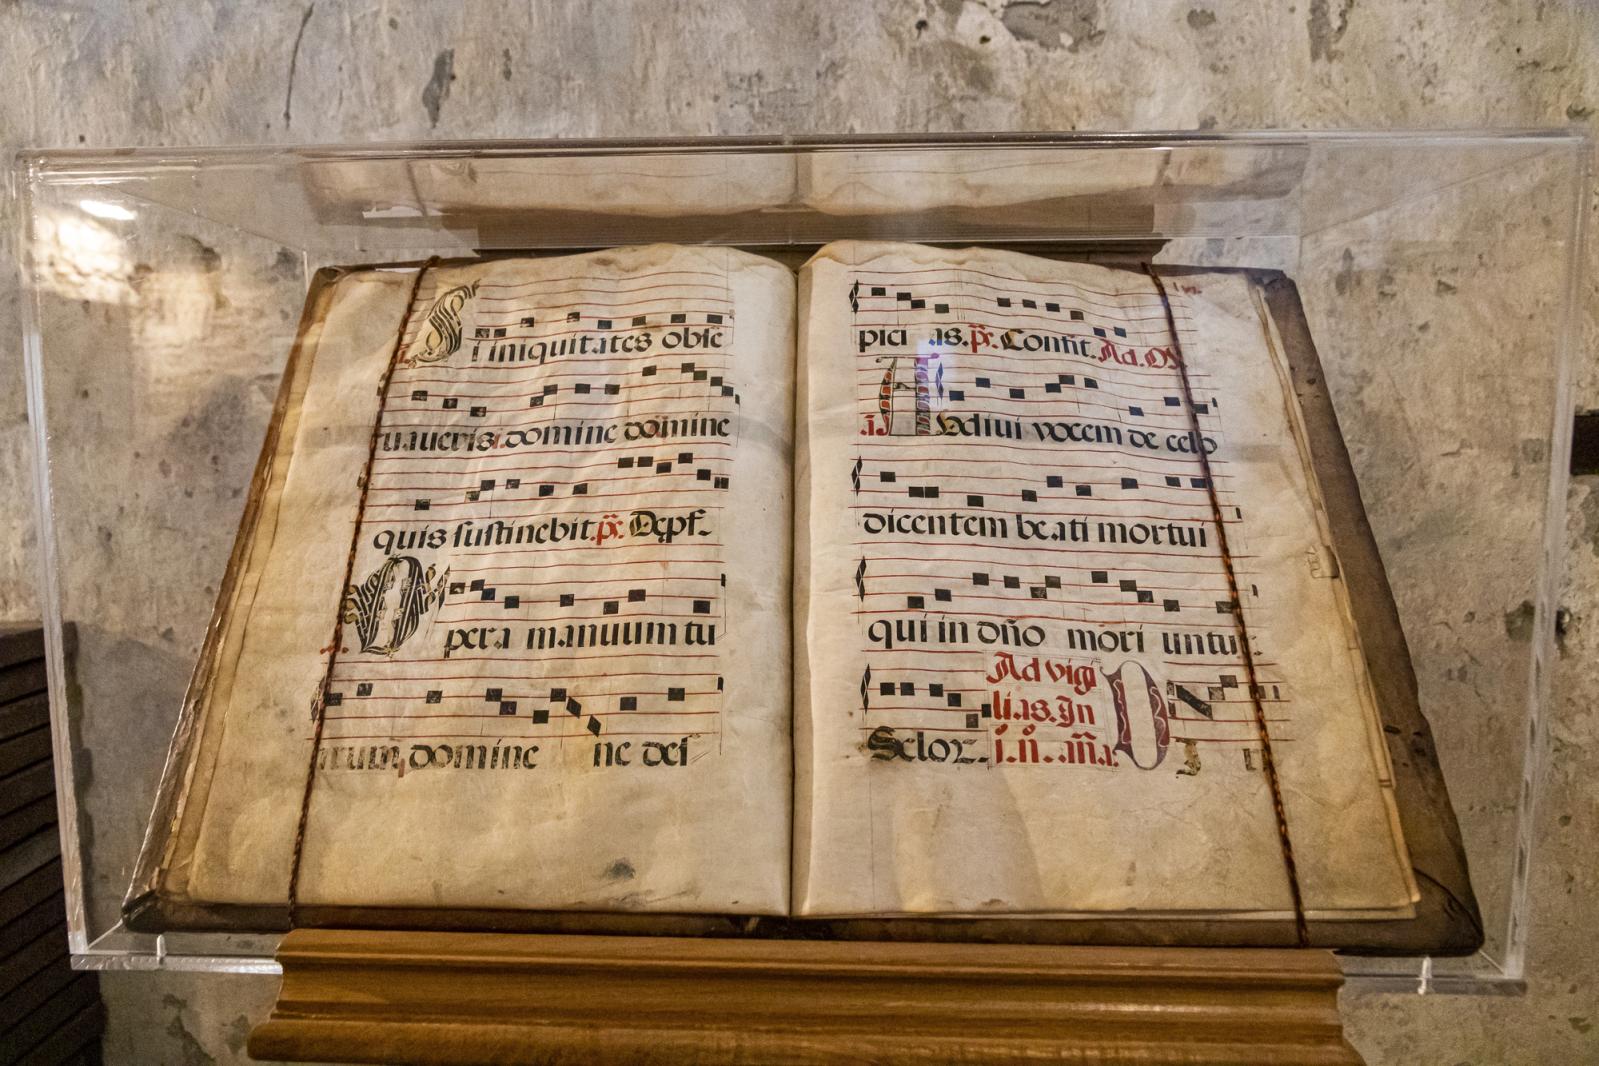 Si iniquitates obse
ruaueris. domine domine
quis sustinebit. ps. Depf.
Opera manuum tu
arum, domine ne des
pici as. ps. Confit. Ad. OS
añ. Audiui vocem de celo
dicentem beati mortui
qui in dño mori untur
Ad vigi
lias. In
Selor. j. ñ. aña.